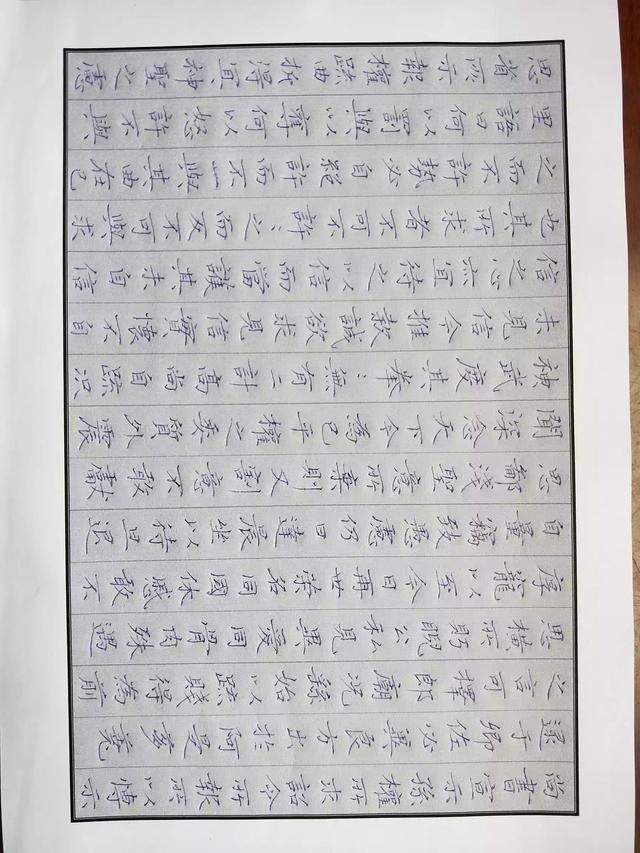 尚書宣示孫權所求詔令所報所以博示
逮于卿佐必冀良方出於阿是芻蕘
之言可擇郎廟況繇始以疏賤得為前
恩橫所盼睨公私見異愛同骨肉殊遇
厚寵以至今日再世榮名同國休慼敢不
自量竊致愚慮仍日達晨坐以待旦退
思鄙淺聖意所棄則又割意不敢獻
聞深念天下今為已平權之委質外震
神武度其拳:無有二計高尚自疏況
未見信今推款誠欲求見信實懷不自
信之心亦宜待之以信而當護其未自信
也其所求者不可不許:之而反不可與求
之而不許勢必自絕許而不與其曲在己
里語曰何以罰與以奪何以怒許不與
思省所示報權疏曲折得宜神聖之慮